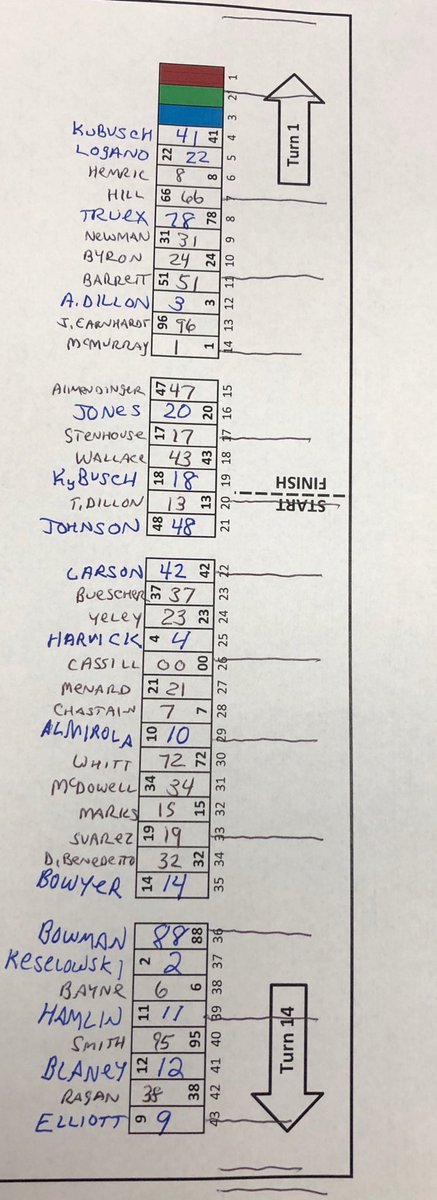 1
2
3
Turn 1
KuBUSCH 41 41 4
LOGANO 22 22 5
HEMRIC 8 8 6
HILL 66 66 7
TRUEX 78 78 8
NEWMAN 31 31 9
BYRON 24 24 10
BARRETT 51 51 11
A.DILLON 3 3 12
J.EARNHARDT 96 96 13
McMURRAY 1 1 14
Allmendinger 47 47 15
JONES 20 20 16
STENHOUSE 17 17 17
WALLACE 43 43 18
KyBUSCH 18 18 19
FINISH
START
T.DILLON 13 13 20
JOHNSON 48 48 21
LARSON 42 42 22
BUESCHER 37 37 23
YELEY 23 23 24
HARVICK 4 4 25
CASSILL 00 00 26
MENARD 21 21 27
CHASTAIN 7 7 28
ALMIROLA 10 10 29
WHITT 72 72 30
McDOWELL 34 34 31
MARKS 15 15 32
SUAREZ 19 19 33
D.BENEDETTO 32 32 34
BOWYER 14 14 35
BOWMAN 88 88 36
KESELOWSKI 2 2 37
BAYNE 6 6 38
HAMLIN 11 11 39
SMITH 95 95 40
BLANEY 12 12 41
RAGAN 38 38 42
ELLIOTT 9 9 43
Turn 14